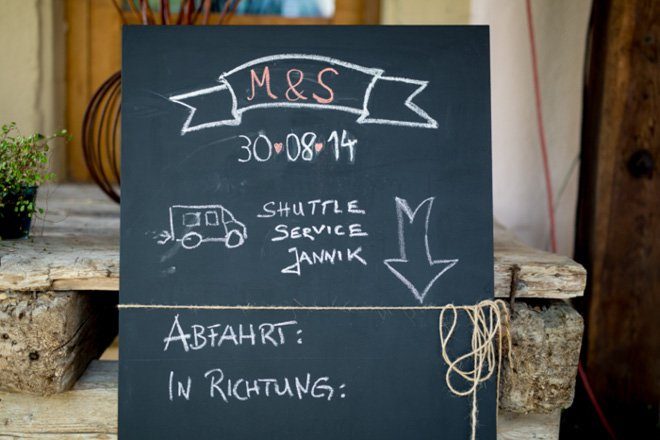 M & S
30♥08♥14
SHUTTLE
SERVICE
JANNIK
ABFAHRT:
IN RICHTUNG: